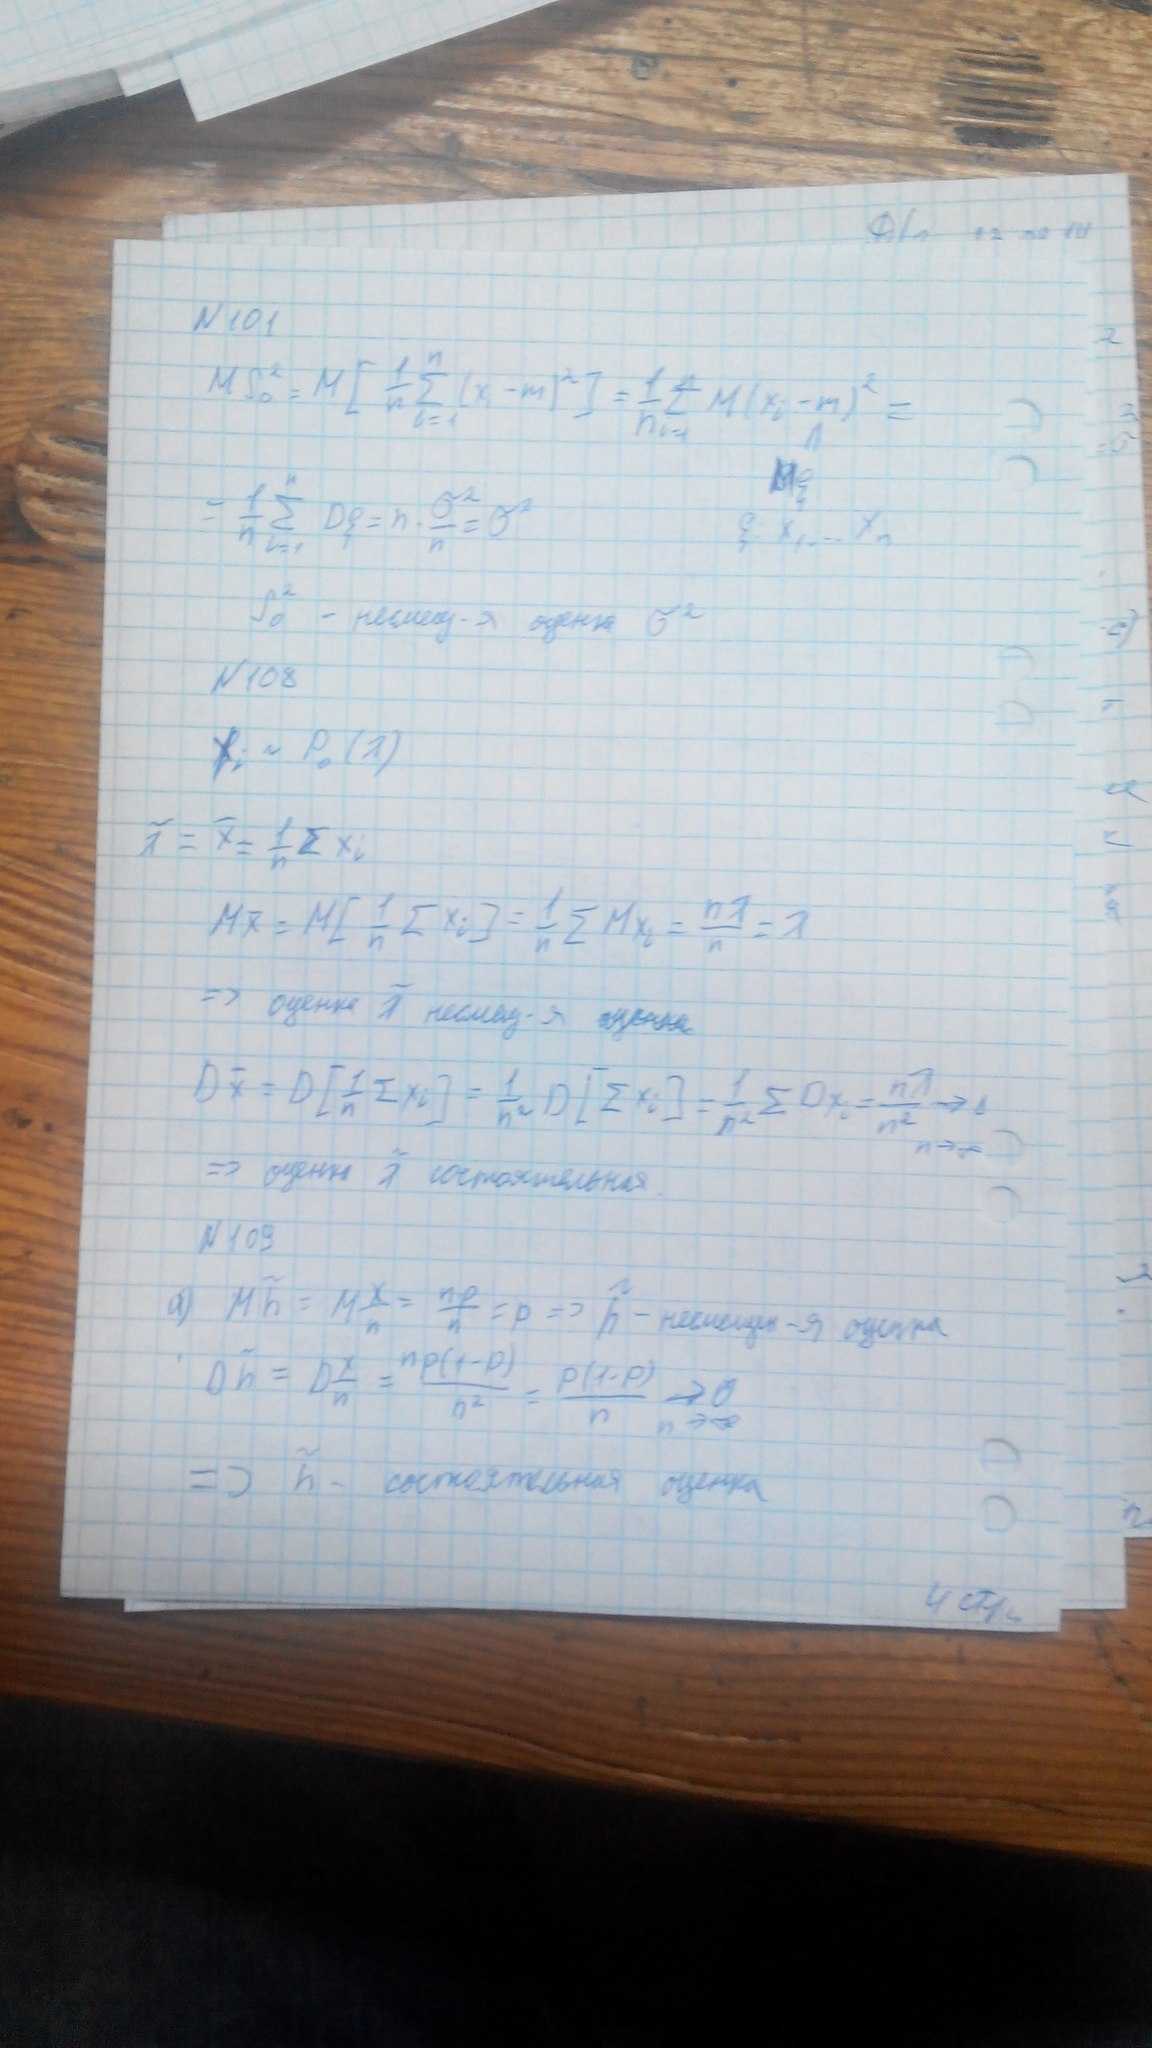 N 101
M S₀² = M[ 1/n Σ_{i=1}^{n} (x_i - m)² ] = 1/n Σ_{i=1}^{n} M(x_i - m)² =
Mξ
ξ: x₁, ... x_n
= 1/n Σ_{i=1}^{n} Dξ = n · σ²/n = σ²
S₀² - несмещ-я оценка σ²
N 108
x_i ~ P₀(λ)
λ̃ = x̄ = 1/n Σ x_i
M x̄ = M[ 1/n Σ x_i ] = 1/n Σ M x_i = nλ/n = λ
=> оценка λ̃ несмещ-я оценка
D x̄ = D[ 1/n Σ x_i ] = 1/n² D[ Σ x_i ] = 1/n² Σ D x_i = nλ/n² → 0 n→∞
=> оценка λ̃ состоятельная.
N 109
а) M h̃ = M x/n = np/n = p => h̃ - несмещен-я оценка
D h̃ = D x/n = np(1-p)/n² = p(1-p)/n → 0 n→∞
=> h̃ - состоятельная оценка
4 стр.